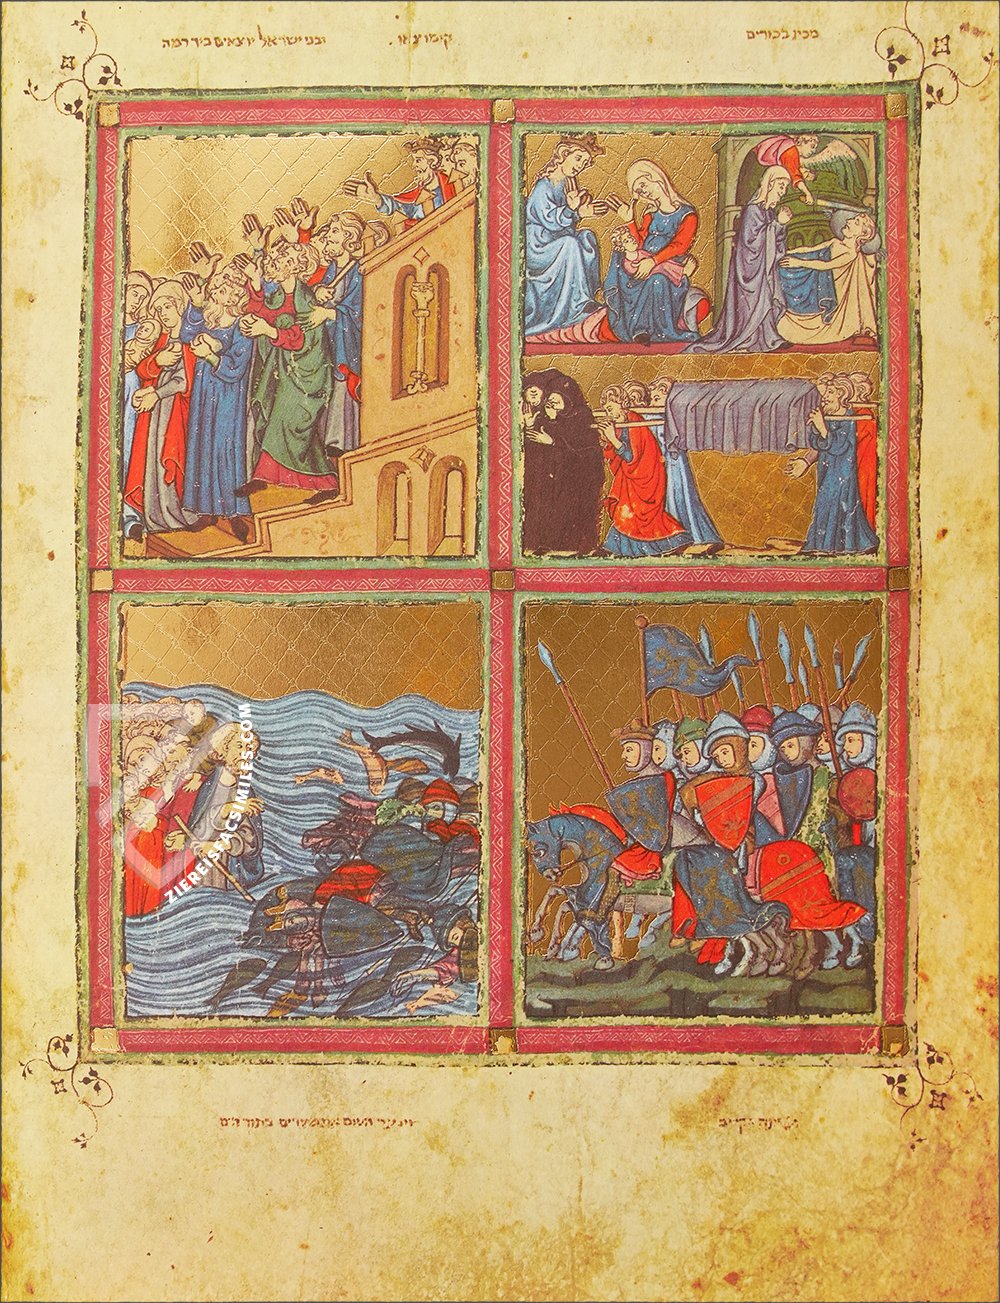 מכת בכורים
קומו צאו
ובני ישראל יוצאים ביד רמה
ZIEREISFACSIMILES.COM
ופרעה הקריב
וינער השם את מצרים בתוך הים